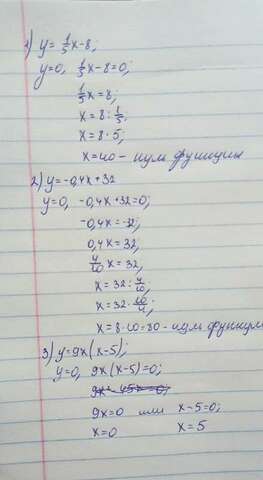 1) y = 1/5 x - 8;
y = 0, 1/5 x - 8 = 0;
1/5 x = 8;
x = 8 : 1/5;
x = 8 · 5;
x = 40 - нуль функции
2) y = -0,4x + 32
y = 0, -0,4x + 32 = 0;
-0,4x = -32;
0,4x = 32,
4/10 x = 32,
x = 32 : 4/10,
x = 32 · 10/4,
x = 8 · 10 = 80 - нуль функции
3) y = 9x(x - 5);
y = 0, 9x(x - 5) = 0;
9x² - 45x = 0;
9x = 0 или x - 5 = 0;
x = 0 x = 5